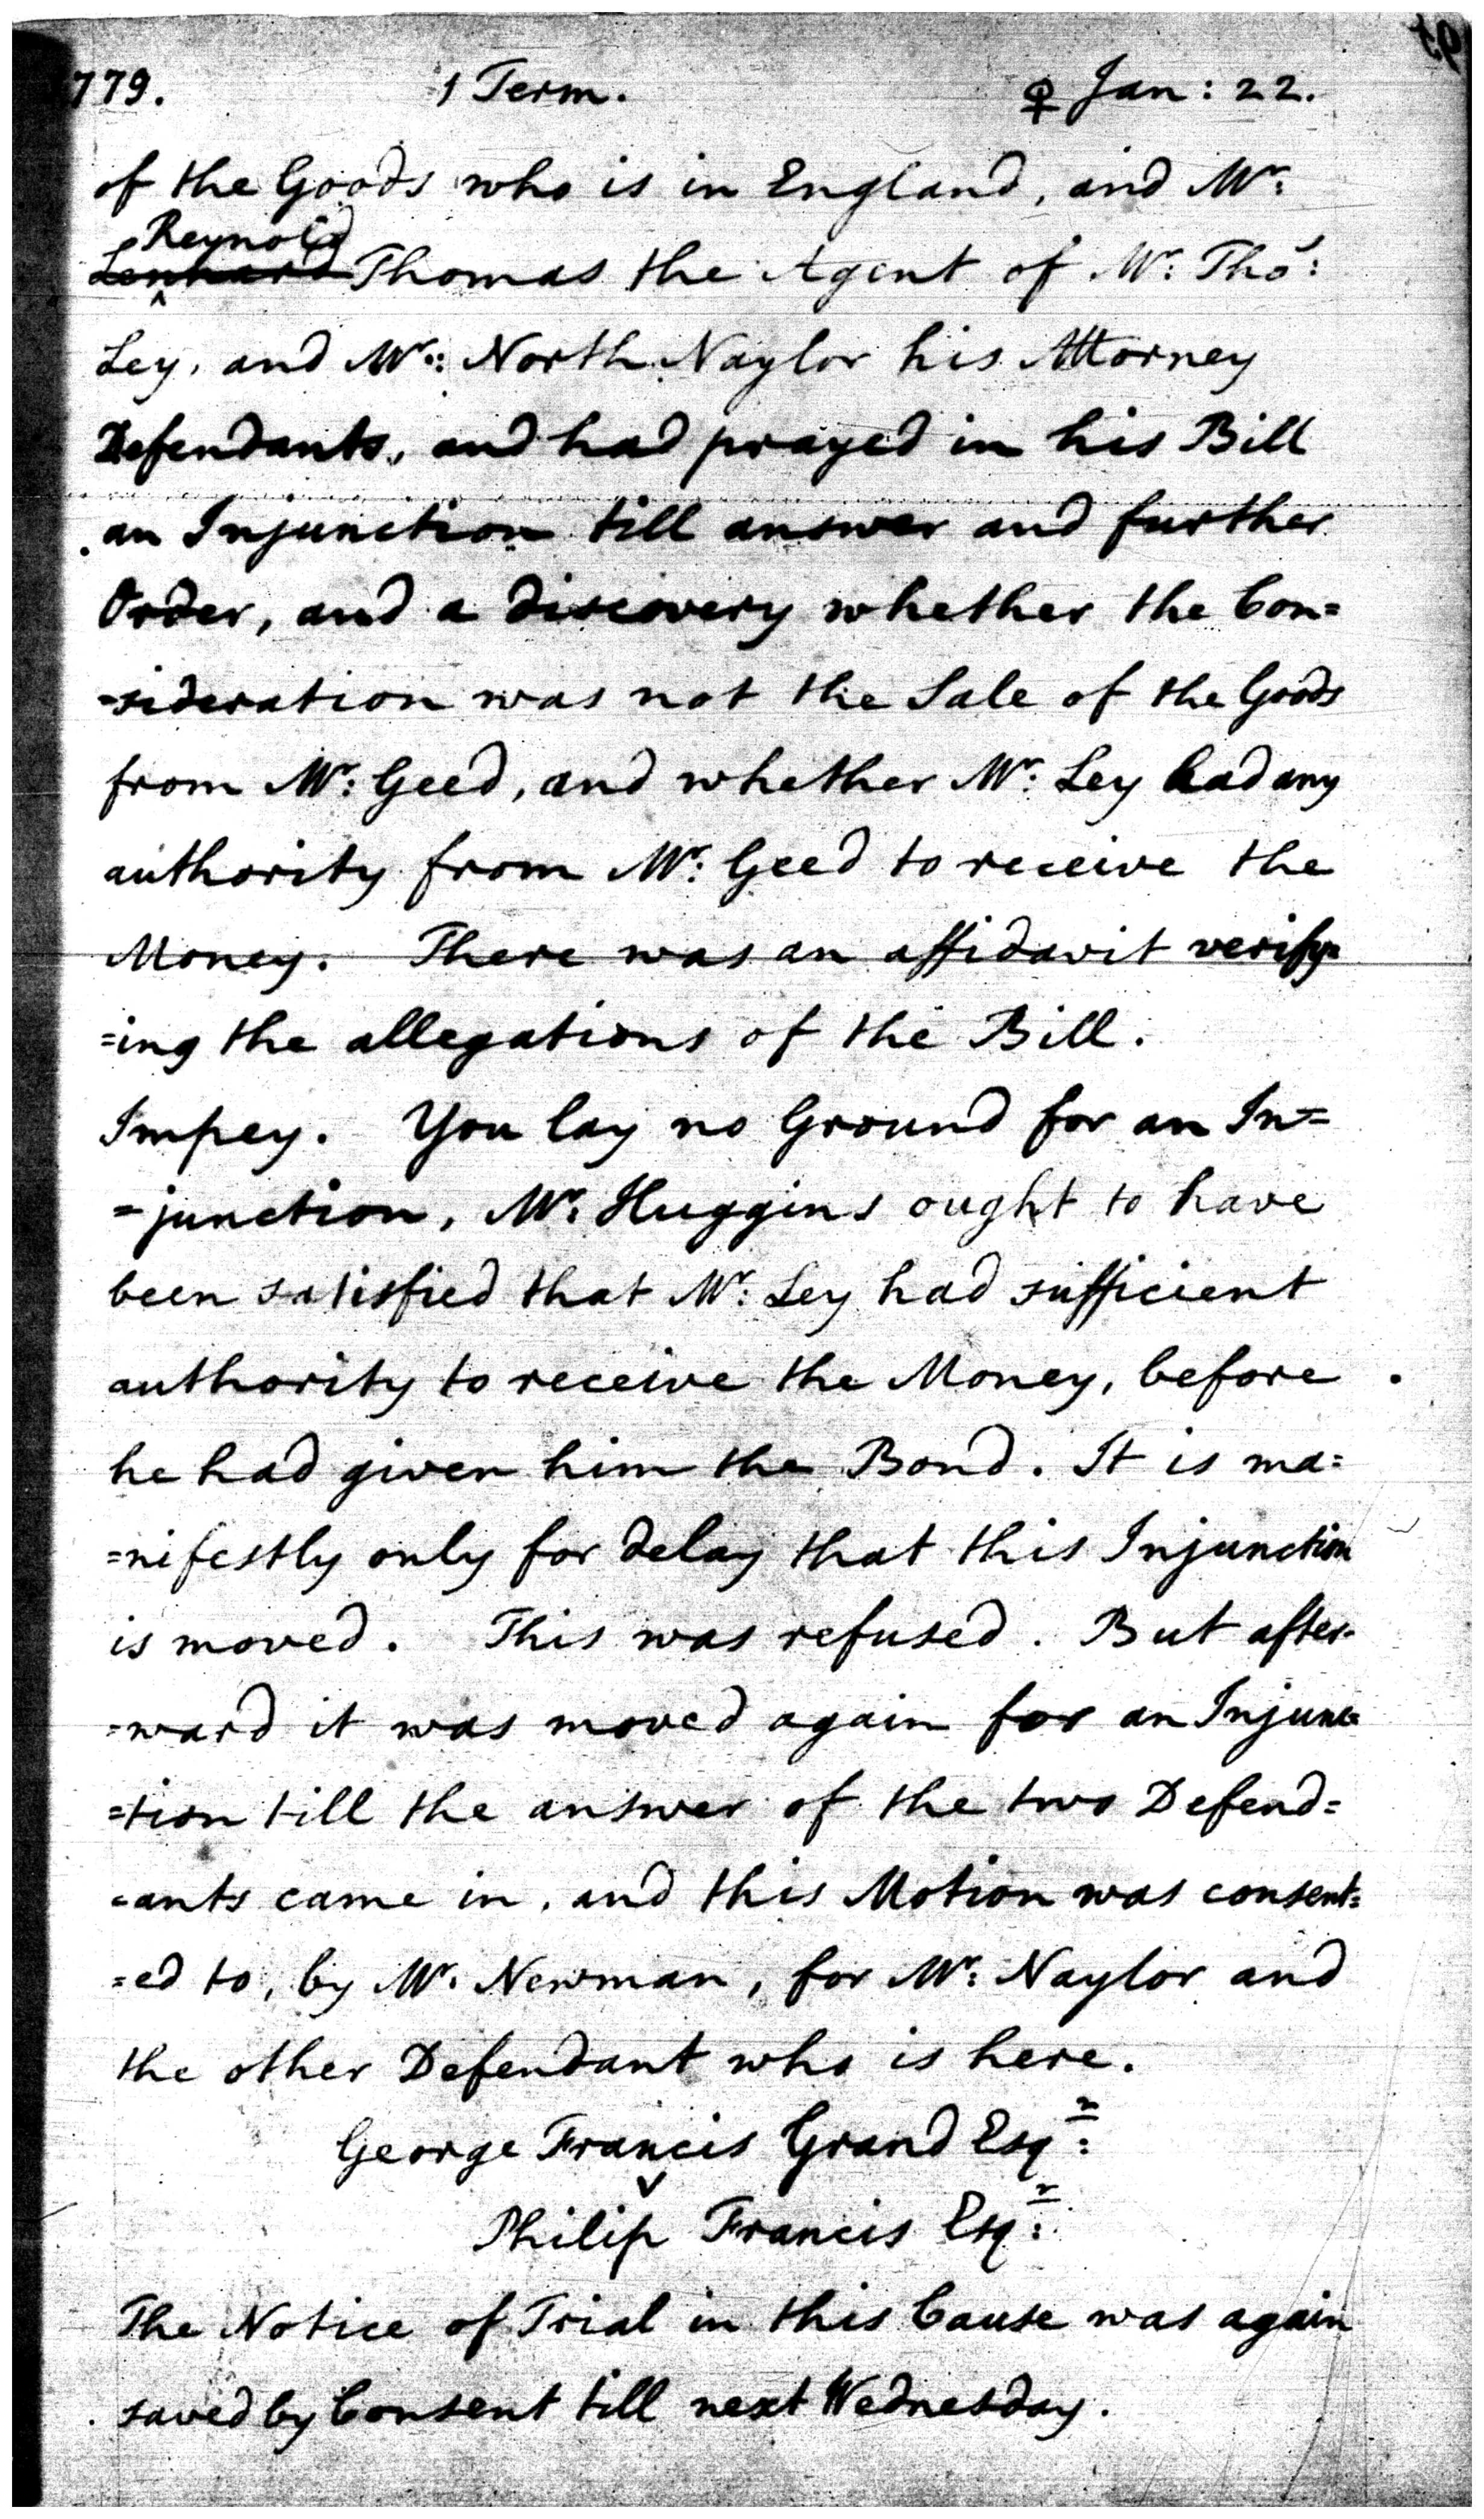 779. 1 Term. ♀ Jan: 22.
of the Goods who is in England, and Mr:
Reynold
Lenhard Thomas the Agent of Mr: Thos:
Ley, and Mr: North Naylor his Attorney
Defendants, and had prayed in his Bill
an Injunction till answer and further
Order, and a discovery whether the Con=
=sideration was not the Sale of the Goods
from Mr: Geed, and whether Mr: Ley had any
authority from Mr: Geed to receive the
Money. There was an affidavit verify=
=ing the allegations of the Bill.
Impey. You lay no Ground for an In=
=junction, Mr: Huggins ought to have
been satisfied that Mr: Ley had sufficient
authority to receive the Money, before
he had given him the Bond. It is ma=
=nifestly only for delay that this Injunction
is moved. This was refused. But after=
=ward it was moved again for an Injunc=
=tion till the answer of the two Defend=
=ants came in, and this Motion was consent=
=ed to, by Mr: Newman, for Mr: Naylor and
the other Defendant who is here.
George Francis Grand Esqr:
v
Philip Francis Esqr:
The Notice of Trial in this Cause was again
saved by Consent till next Wednesday.